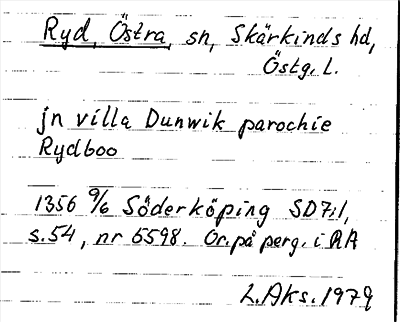 Ryd, Östra, sn, Skärkinds hd,
Östg. L.
jn villa Dunwik parochie
Rydboo
1356 9/6 Söderköping SD7:1,
s. 54, nr 5598. Or. på perg. i RA
L. Aks. 1979